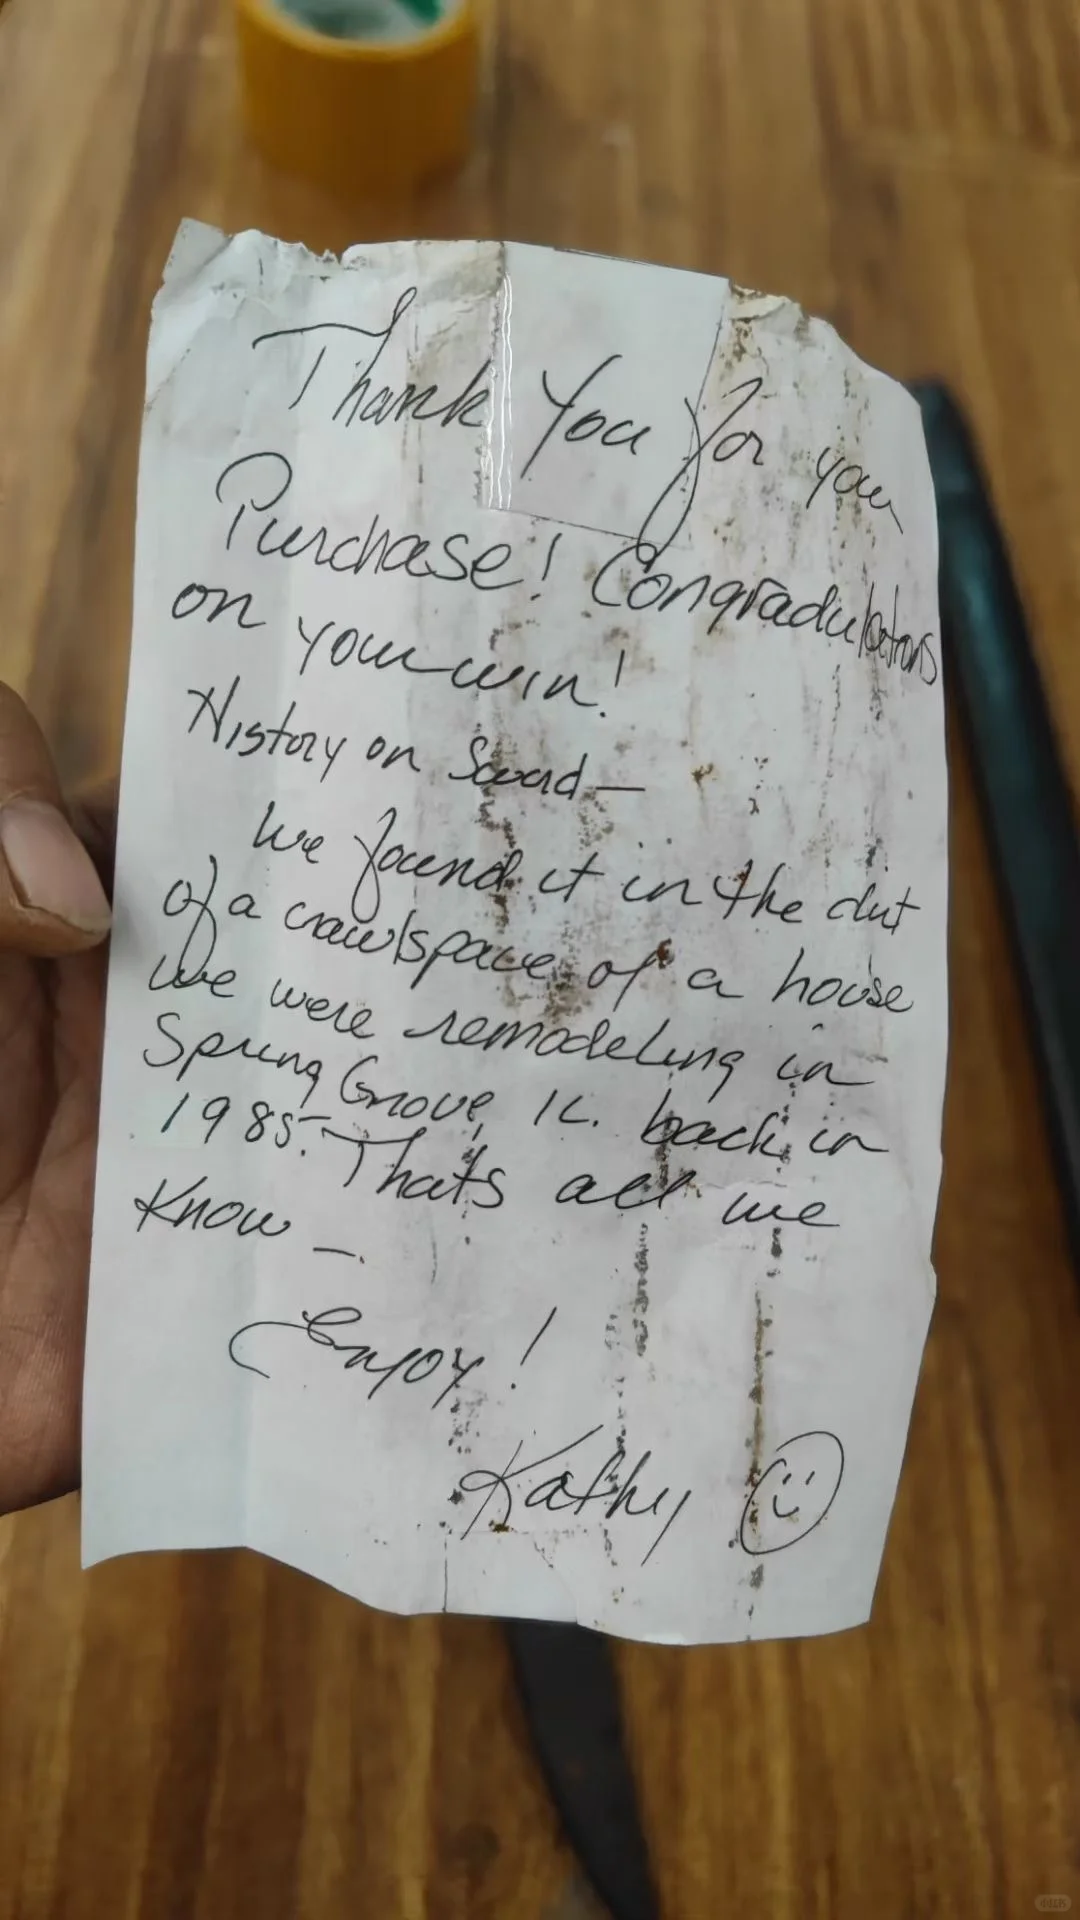 Thank You for your
Purchase! Congradulations
on your win!
History on Sword —
We found it in the dirt
of a crawlspace of a house
we were remodeling in
Spring Grove, IL. back in
1985. Thats all we
Know —.
Enjoy!
Kathy